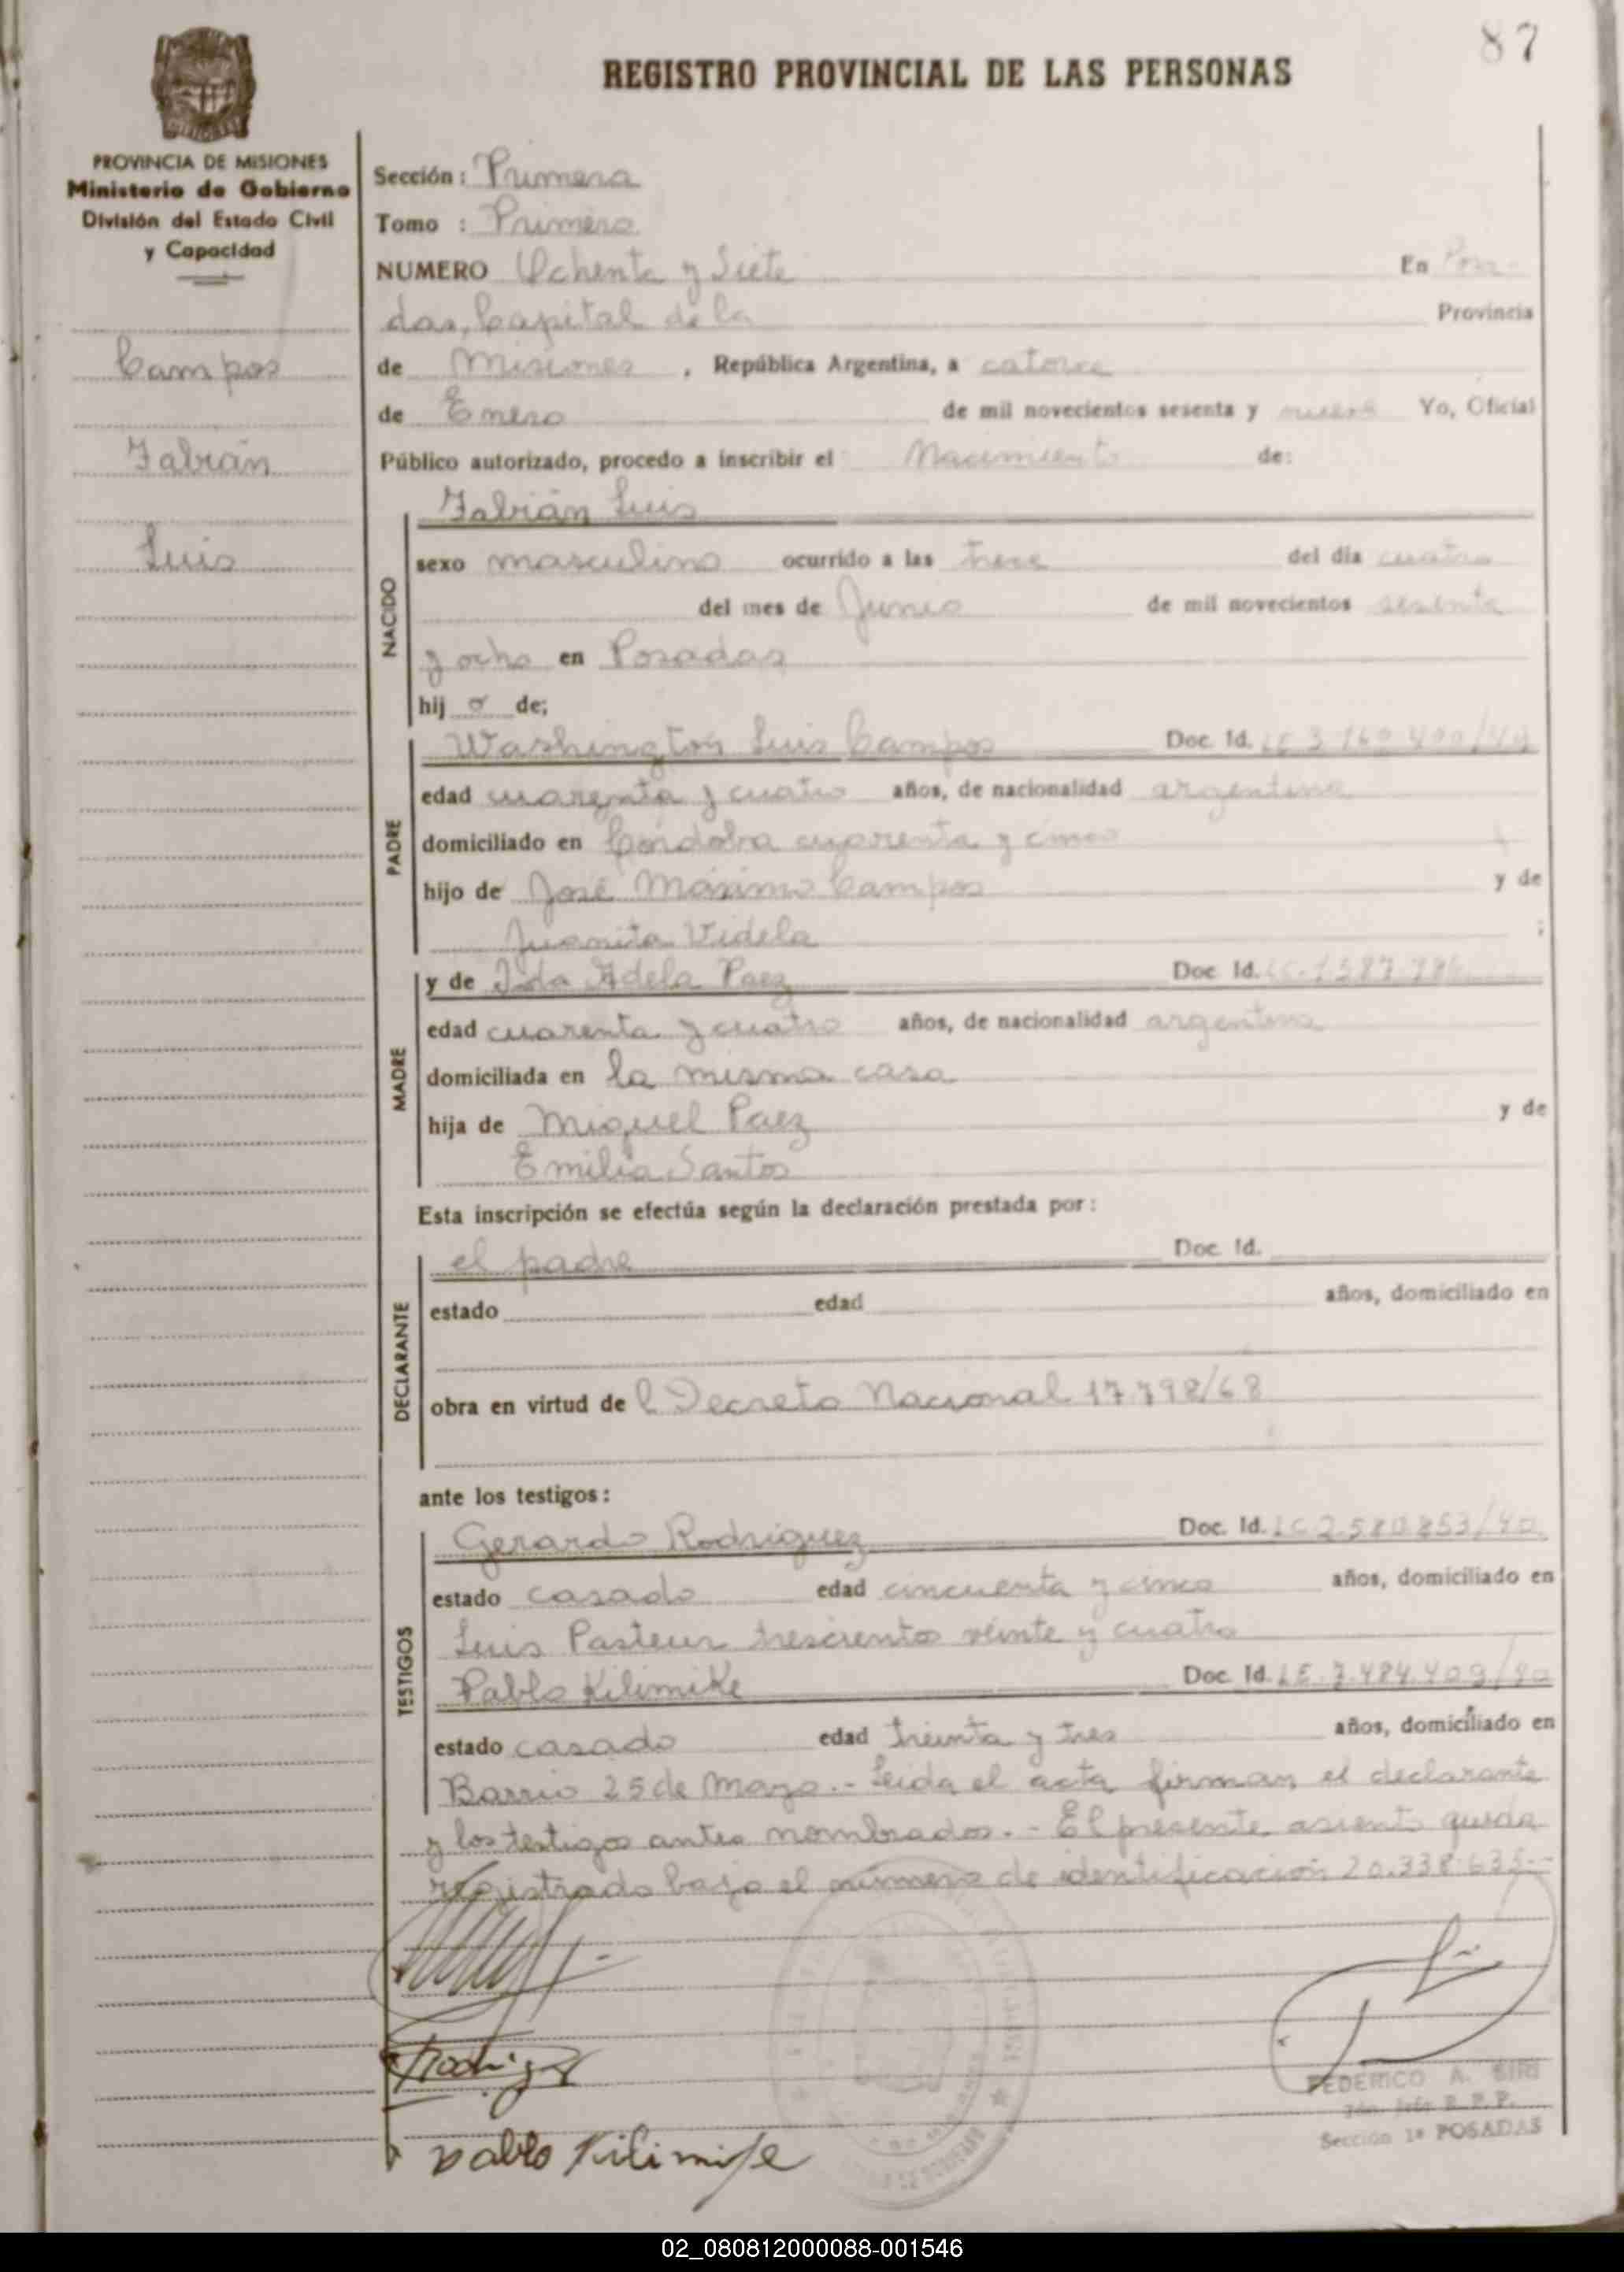 87
REGISTRO PROVINCIAL DE LAS PERSONAS
PROVINCIA DE MISIONES
Ministerio de Gobierno
División del Estado Civil
y Capacidad
Campos
Fabián
Luis
Sección: Primera
Tomo : Primero
NUMERO Ochenta y Siete En Posa-
das, Capital de la Provincia
de Misiones , República Argentina, a catorce
de Enero de mil novecientos sesenta y nueve Yo, Oficial
Público autorizado, procedo a inscribir el Nacimiento de:
NACIDO
Fabián Luis
sexo masculino ocurrido a las trece del día cuatro
del mes de Junio de mil novecientos sesenta
y ocho en Posadas
hij o de;
PADRE
Washington Luis Campos Doc. Id.
edad cuarenta y cuatro años, de nacionalidad argentina
domiciliado en Córdoba cuarenta y cinco
hijo de José Máximo Campos y de
Juanita Videla ;
MADRE
y de Ida Adela Paez Doc. Id.
edad cuarenta y cuatro años, de nacionalidad argentina
domiciliada en la misma casa
hija de Miguel Paez y de
Emilia Santos
Esta inscripción se efectúa según la declaración prestada por:
DECLARANTE
el padre Doc. Id.
estado edad años, domiciliado en
obra en virtud de l Decreto Nacional 17.798/68
ante los testigos:
TESTIGOS
Gerardo Rodriguez Doc. Id. 2.580.853/40
estado casado edad cincuenta y cinco años, domiciliado en
Luis Pasteur trescientos veinte y cuatro
Pablo Kilimike Doc. Id. LE. 7.484.409/80
estado casado edad treinta y tres años, domiciliado en
Barrio 25 de Mayo.- Leída el acta firman el declarante
y los testigos antes nombrados.- El presente asiento queda
registrado bajo el número de identificación 20.338.635.-
Pablo Kilimike
FEDERICO A. SIRI
R. P. P.
Sección 1ª POSADAS
02_080812000088-001546